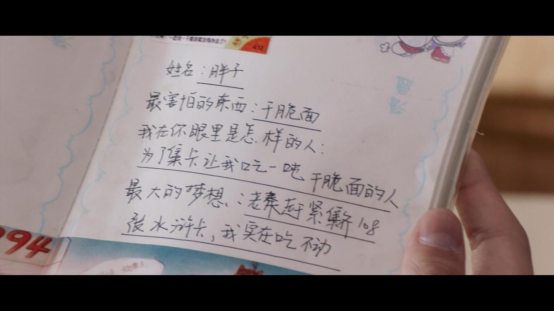 姓名:胖子
最害怕的东西:干脆面
我在你眼里是怎样的人:
为了集卡让我吃一吨干脆面的人
最大的梦想:老秦赶紧集齐108
张水浒卡,我实在吃不动
994